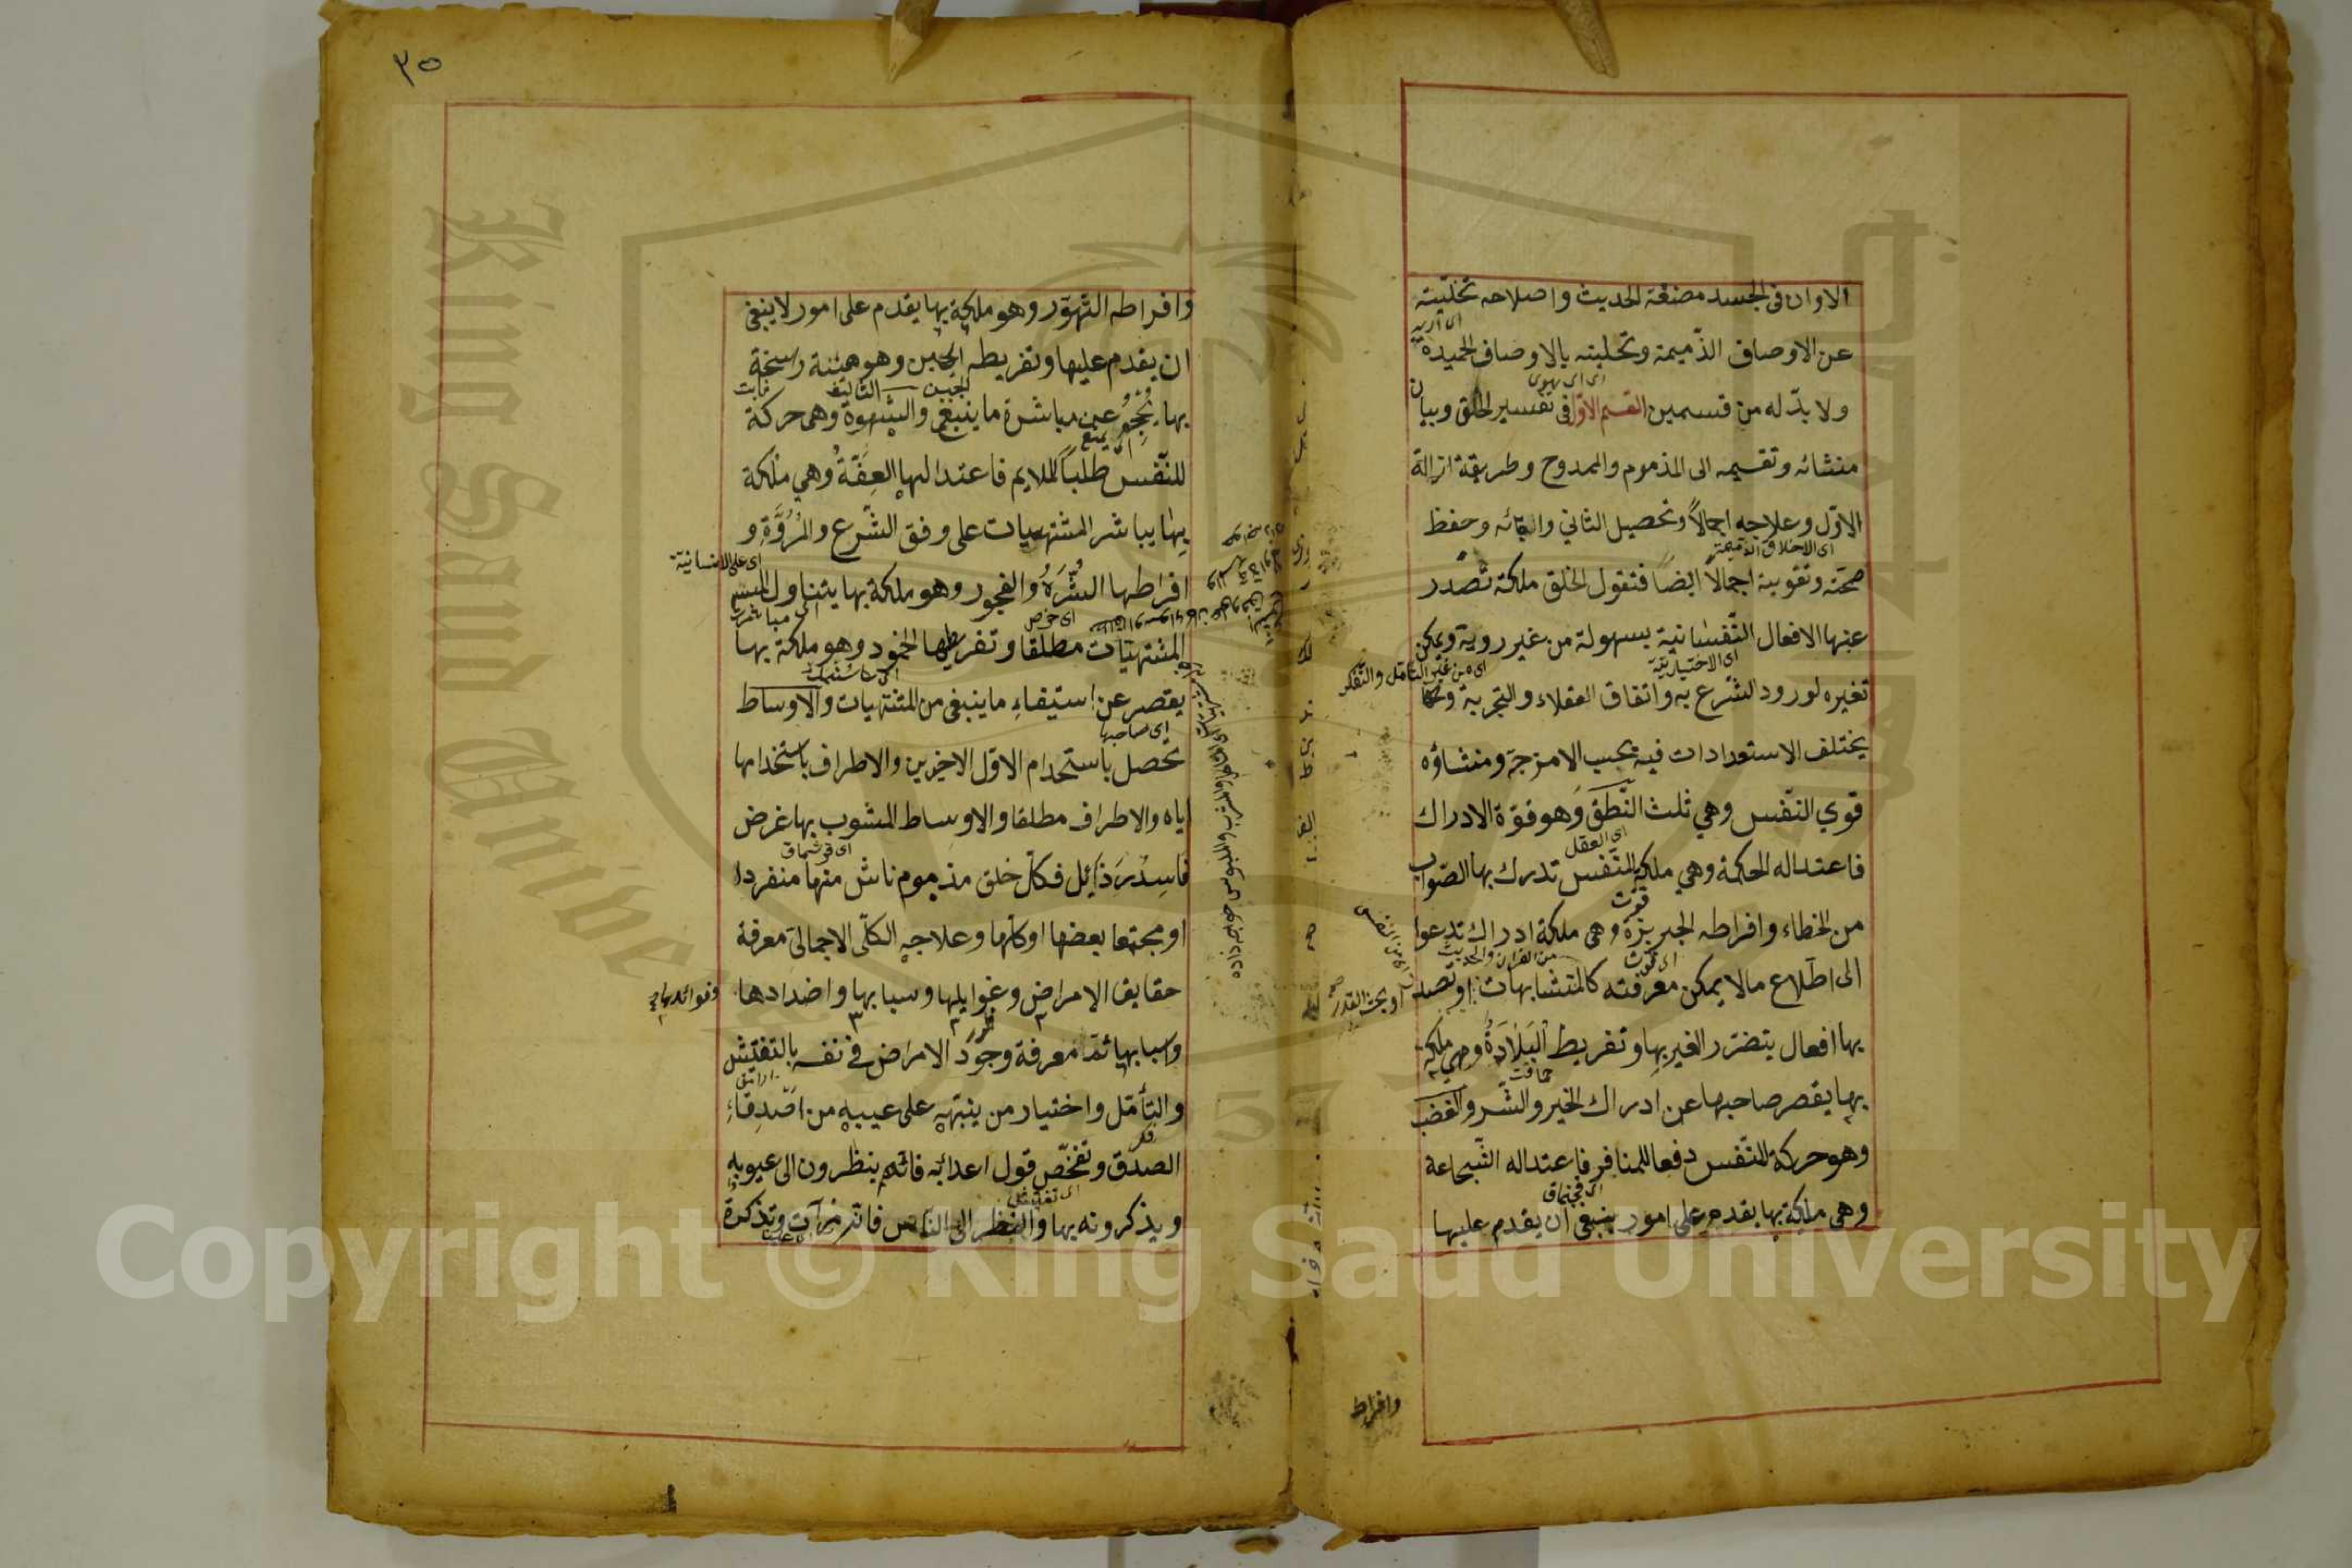 الاوان فى الجسد مضغة الحديث واصلاحه تخليته
عن الاوصاف الذميمة وتحليته بالاوصاف الحميدة
ولا بدّ له من قسمين القسم الاوّل فى تفسير الخلق وبيان
منشائه وتقسيمه الى المذموم والممدوح وطريقة ازالة
الاوّل وعلاجه اجمالاً وتحصيل الثاني وابقائه وحفظ
اى الاخلاق الذميمة
صحّته وتقويته اجمالاً ايضاً فنقول الخلق ملكة تصدر
عنها الافعال النّفسانية بسهولة من غير روية ويمكن
اى الاختيارية
اى من غير التأمّل والتّفكر
تغيره لورود الشّرع به واتفاق العقلاء والتجربة
يختلف الاستعدادات فيه بحسب الامزجة ومنشاؤه
قوي النّفس وهي ثلث النّطق وهو قوّة الادراك
اى العقل
فاعتداله الحكمة وهي ملكة للنّفس تدرك بها الصّواب
من الخطاء وافراطه الجربزة وهى ملكة ادراك تدعوا
من القران والحديث
الى اطّلاع مالا يمكن معرفته كالمتشابهات او تصدر
او بحث القدر
بها افعال يتضرّر الغير بها وتفريط البَلَادَةُ وهي ملكة
حماقت
بها يقصر صاحبها عن ادراك الخير والشّر والغضب
وهو حركة للنّفس دفعا للمنافر فاعتداله الشّجاعة
وهى ملكة بها يقدم على امور ينبغى ان يقدم عليها
وافراط
٣٥
وافراطه التهوّر وهو ملكة بها يقدم على امور لا ينبغى
ان يقدم عليها وتفريطه الجبن وهو هيئة راسخة
ثابت
بها يُحجِمُ عن مباشرة ما ينبغى والشهوة وهى حركة
يمنع
للنّفس طلباً للملايم فاعتدالها العِفّةُ وهي ملكة
بها يباشر المشتهيات على وفق الشّرع والمُرُوَّةِ و
اى على الانسانية
افراطها الشَّرَهُ والفجور وهو ملكة بها يتناول
اى حرص
المشتهيّات مطلقا وتفريطها الخمود وهو ملكة بها
يقصر عن استيفاءِ ما ينبغى من المشتهيات والاوساط
اى صاحبها
تحصل باستخدام الاوّل الاخيرين والاطراف باستخدامها
اياه والاطراف مطلقا والاوساط المشوب بها غرض
فاسِدٌ رَذَائل فكلّ خلق مذموم ناش منها منفردا
او مجتمعا بعضها او كلّها وعلاجه الكلّى الاجمالى معرفة
حقايق الامراض وغوايلها وسبابها واضدادها
وفوائدها
واسبابها ثمّ معرفة وجود الامراض فى نفسه بالتفتيش
والتأمّل واختيار من ينبّهه على عيبه من اصدِقاءِ
الصدق وتفحّص قول اعدائه فانّهم ينظرون الى عيوبه
اى تفتيش
ويذكرونه بها والنظر الى الناس فانّهم مرآت وتذكرة
Copyright © King Saud University
King Saud University
1957